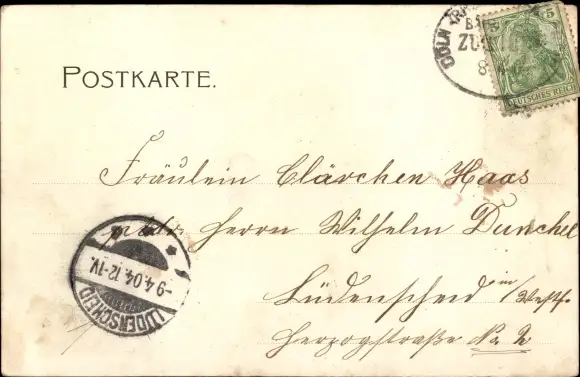 CÖLN
ZUG
8
5 5
DEUTSCHES REICH
POSTKARTE.
Fräulein Clärchen Haas
Herrn Wilhelm Dunckel
Lüdenscheid in Westf.
Herzogstraße No 2
-9.4.04.12-1V.
LÜDENSCHEID